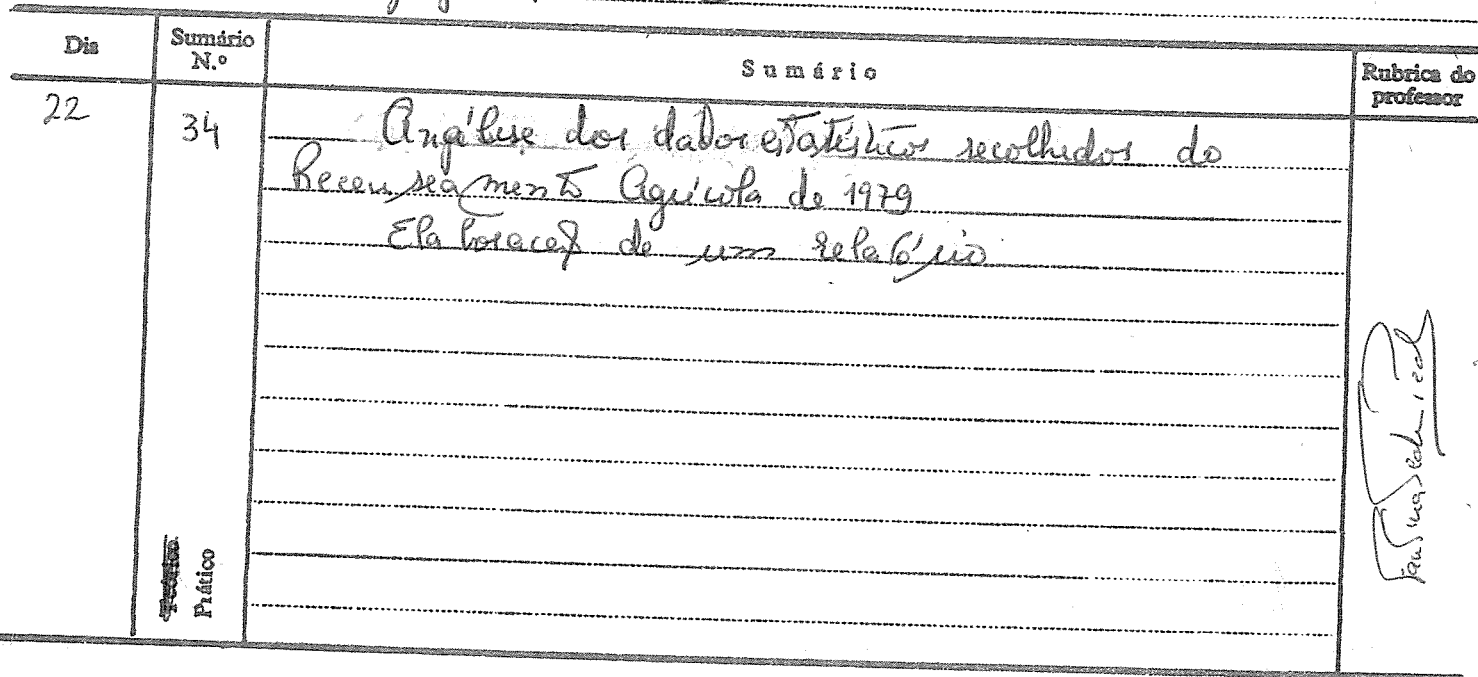 Dia
Sumário N.º
Sumário
Rubrica do professor
22
34
Análise dos dados estatísticos recolhidos do
Recenseamento Agrícola de 1979
Elaboração de um relatório
Teórico
Prático